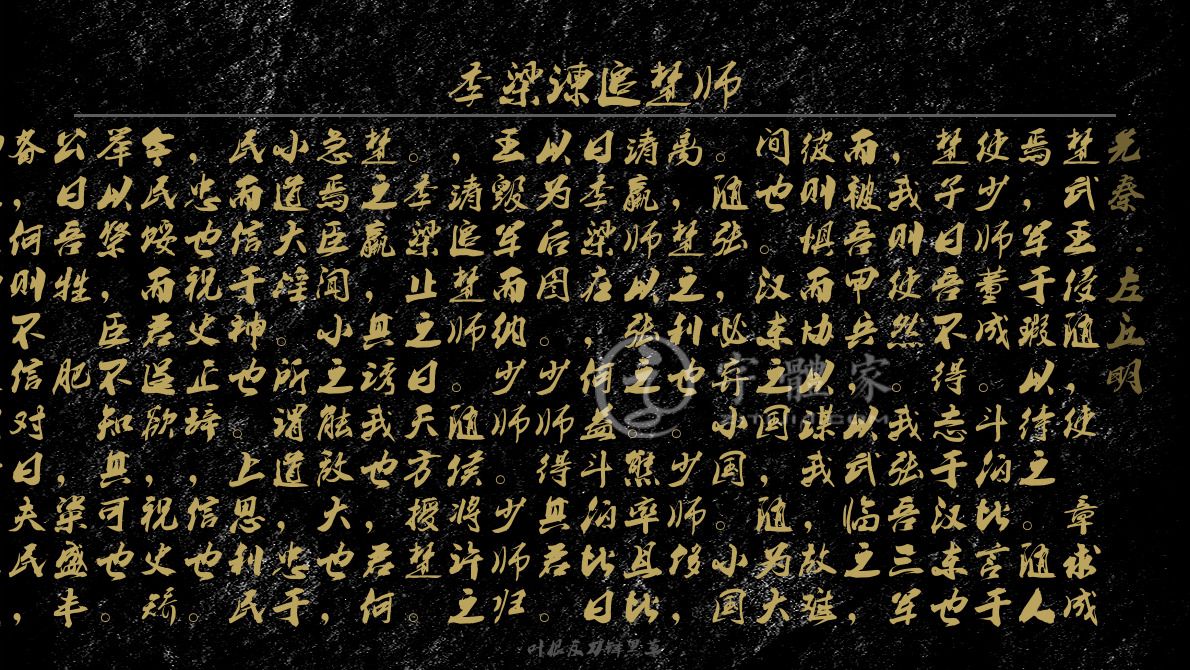 季梁谏追楚师
先秦·左丘明
楚武王侵随,使章求成
焉,军于瑕以待之。随人
使少师董成。斗伯比言于
楚子曰吾不得志于汉东也
,我则使然。我张吾三军
而被吾甲兵,以武临之,
彼则惧而协以谋我,故难
间也。汉东之国,随为大
。随张,必弃小国。小国
离,楚之利也。少师侈,
请羸师以张之。熊率且比
曰季梁在,何益斗伯比曰
以为后图。少师得其君。
王毁军而纳少师。少师归
,请追楚师。随侯将许之
。季梁止之曰天方授楚。
楚之羸,其诱我也,君何
急焉臣闻小之能敌大也,
小道大淫。所谓道,忠于
民而信于神也。上思利民
,忠也祝史正辞,信也。
今民馁而君逞欲,祝史矫
举以祭,臣不知其可也。
公曰吾牲肥,粢盛丰
备,何则不信对曰夫民,
字體家